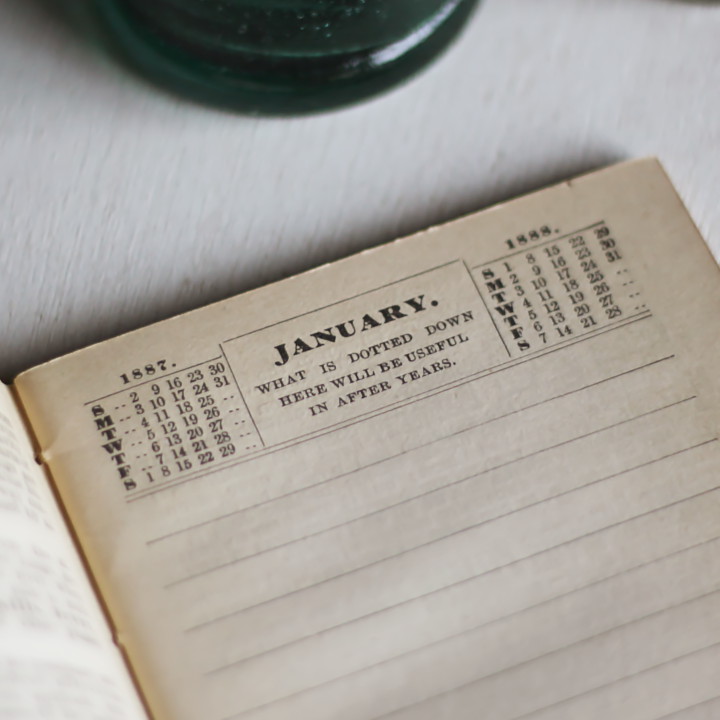 1887.
S .. 2 9 16 23 30
M .. 3 10 17 24 31
T .. 4 11 18 25 ..
W .. 5 12 19 26 ..
T .. 6 13 20 27 ..
F .. 7 14 21 28 ..
S 1 8 15 22 29 ..
JANUARY.
WHAT IS DOTTED DOWN
HERE WILL BE USEFUL
IN AFTER YEARS.
1888.
S 1 8 15 22 29
M 2 9 16 23 30
T 3 10 17 24 31
W 4 11 18 25 ..
T 5 12 19 26 ..
F 6 13 20 27 ..
S 7 14 21 28 ..